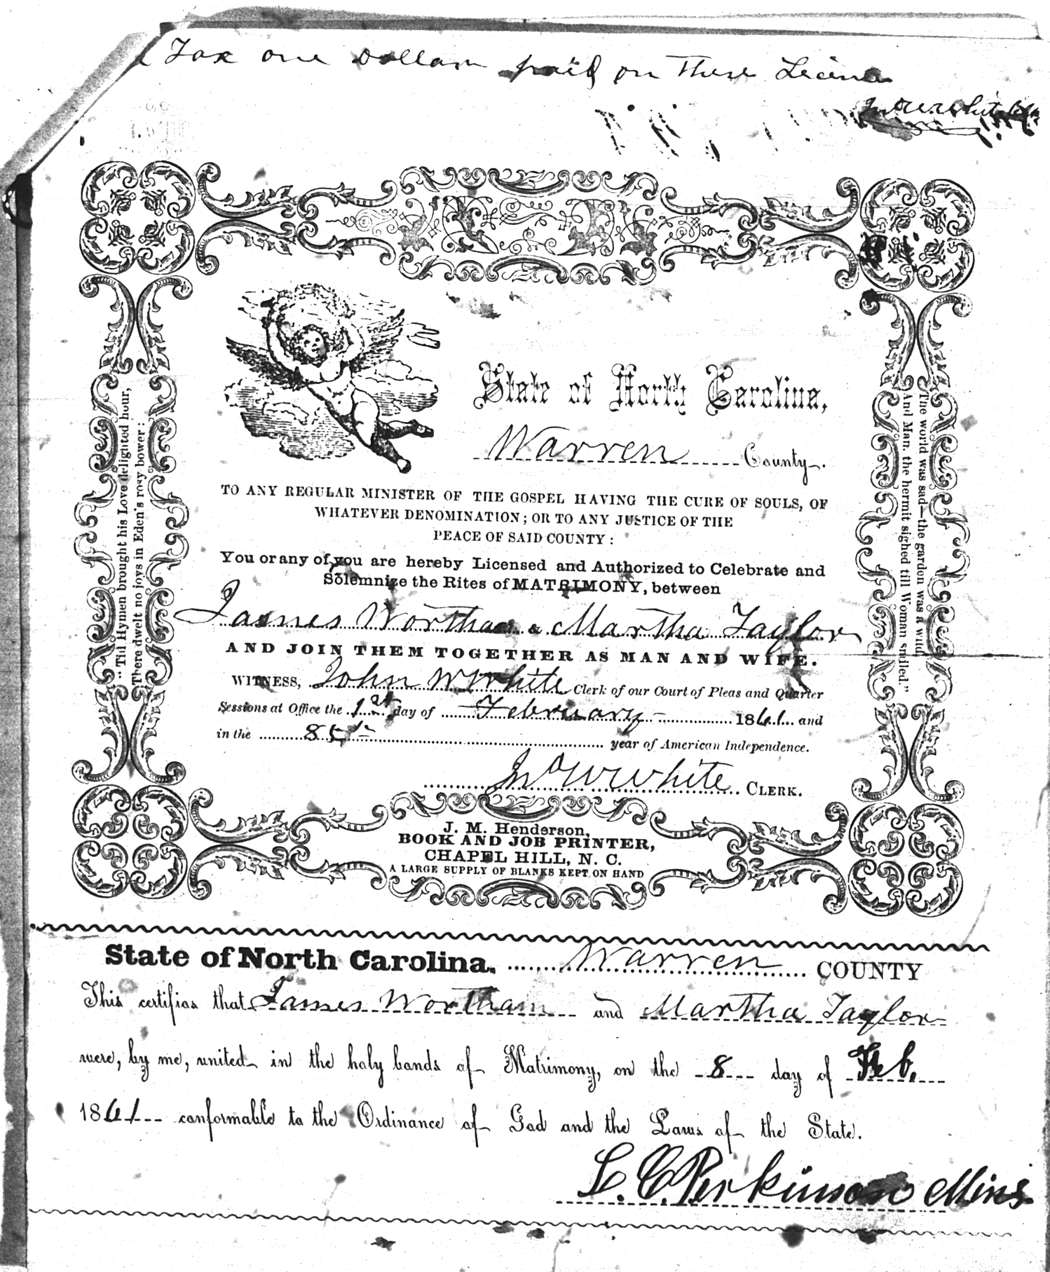 Tax one Dollar paid on these Licence
Jno W White Clk
State of North Carolina,
Warren County.
TO ANY REGULAR MINISTER OF THE GOSPEL HAVING THE CURE OF SOULS, OF
WHATEVER DENOMINATION; OR TO ANY JUSTICE OF THE
PEACE OF SAID COUNTY:
You or any of you are hereby Licensed and Authorized to Celebrate and
Solemnize the Rites of MATRIMONY, between
James Wortham & Martha Taylor
AND JOIN THEM TOGETHER AS MAN AND WIFE.
WITNESS, John W White Clerk of our Court of Pleas and Quarter
Sessions at Office the 1st day of February 1861 and
in the 85th year of American Independence.
Jno W White CLERK.
"Till Hymen brought his Love delighted hour,
There dwelt no joys in Eden's rosy bower:
The world was sad—the garden was a wild,
And Man, the hermit sighed till Woman smiled."
J. M. Henderson,
BOOK AND JOB PRINTER,
CHAPEL HILL, N. C.
A LARGE SUPPLY OF BLANKS KEPT ON HAND
State of North Carolina, Warren COUNTY
This certifies that James Wortham and Martha Taylor
were, by me, united in the holy bands of Matrimony, on the 8 day of Feb.
1861 conformable to the Ordinance of God and the Laws of the State.
L. C. Perkinson Mins